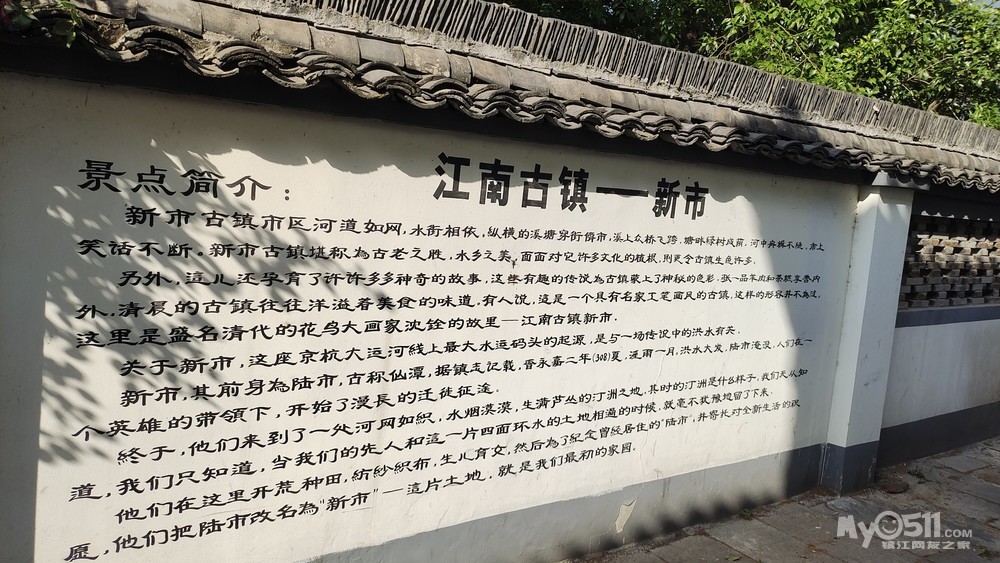 江南古镇——新市
景点简介：
新市古镇市区河道如网，水街相依，纵横的溪塘穿街傍市，溪上众桥飞跨，塘畔绿树成荫，河中舟楫不绝，岸上
笑话不断。新市古镇堪称為古老之胜，水乡之美，面面对它许多文化的植根，则更令古镇生色许多。
另外，這儿还孕育了许许多多神奇的故事，这些有趣的传说為古镇蒙上了神秘的色彩。张一品羊肉和茶糕享誉内
外，清晨的古镇往往洋溢着美食的味道，有人说，這是一个具有名家工笔画风的古镇，这样的形容并不為过，
这里是盛名清代的花鸟大画家沈铨的故里—江南古镇新市。
关于新市，这座京杭大运河线上最大水运码头的起源，是与一场传说中的洪水有关。
新市，其前身為陆市，古称仙潭，据镇志记载，晋永嘉二年(308)夏，淫雨一月，洪水大发，陆市淹没，人们在一
个英雄的带领下，开始了漫長的迁徙征途。
終于，他们来到了一处河网如织，水烟漠漠，生满芦丛的汀洲之地，其时的汀洲是什么样子，我们无从知
道，我们只知道，当我们的先人和這一片四面环水的土地相遇的时候，就毫不犹豫地留了下来。
他们在这里开荒种田，纺紗织布，生儿育女，然后為了紀念曾经居住的“陆市”，并寄托对全新生活的祝
愿，他们把陆市改名為“新市”—這片土地，就是我们最初的家园。
My0511.COM
镇江网友之家